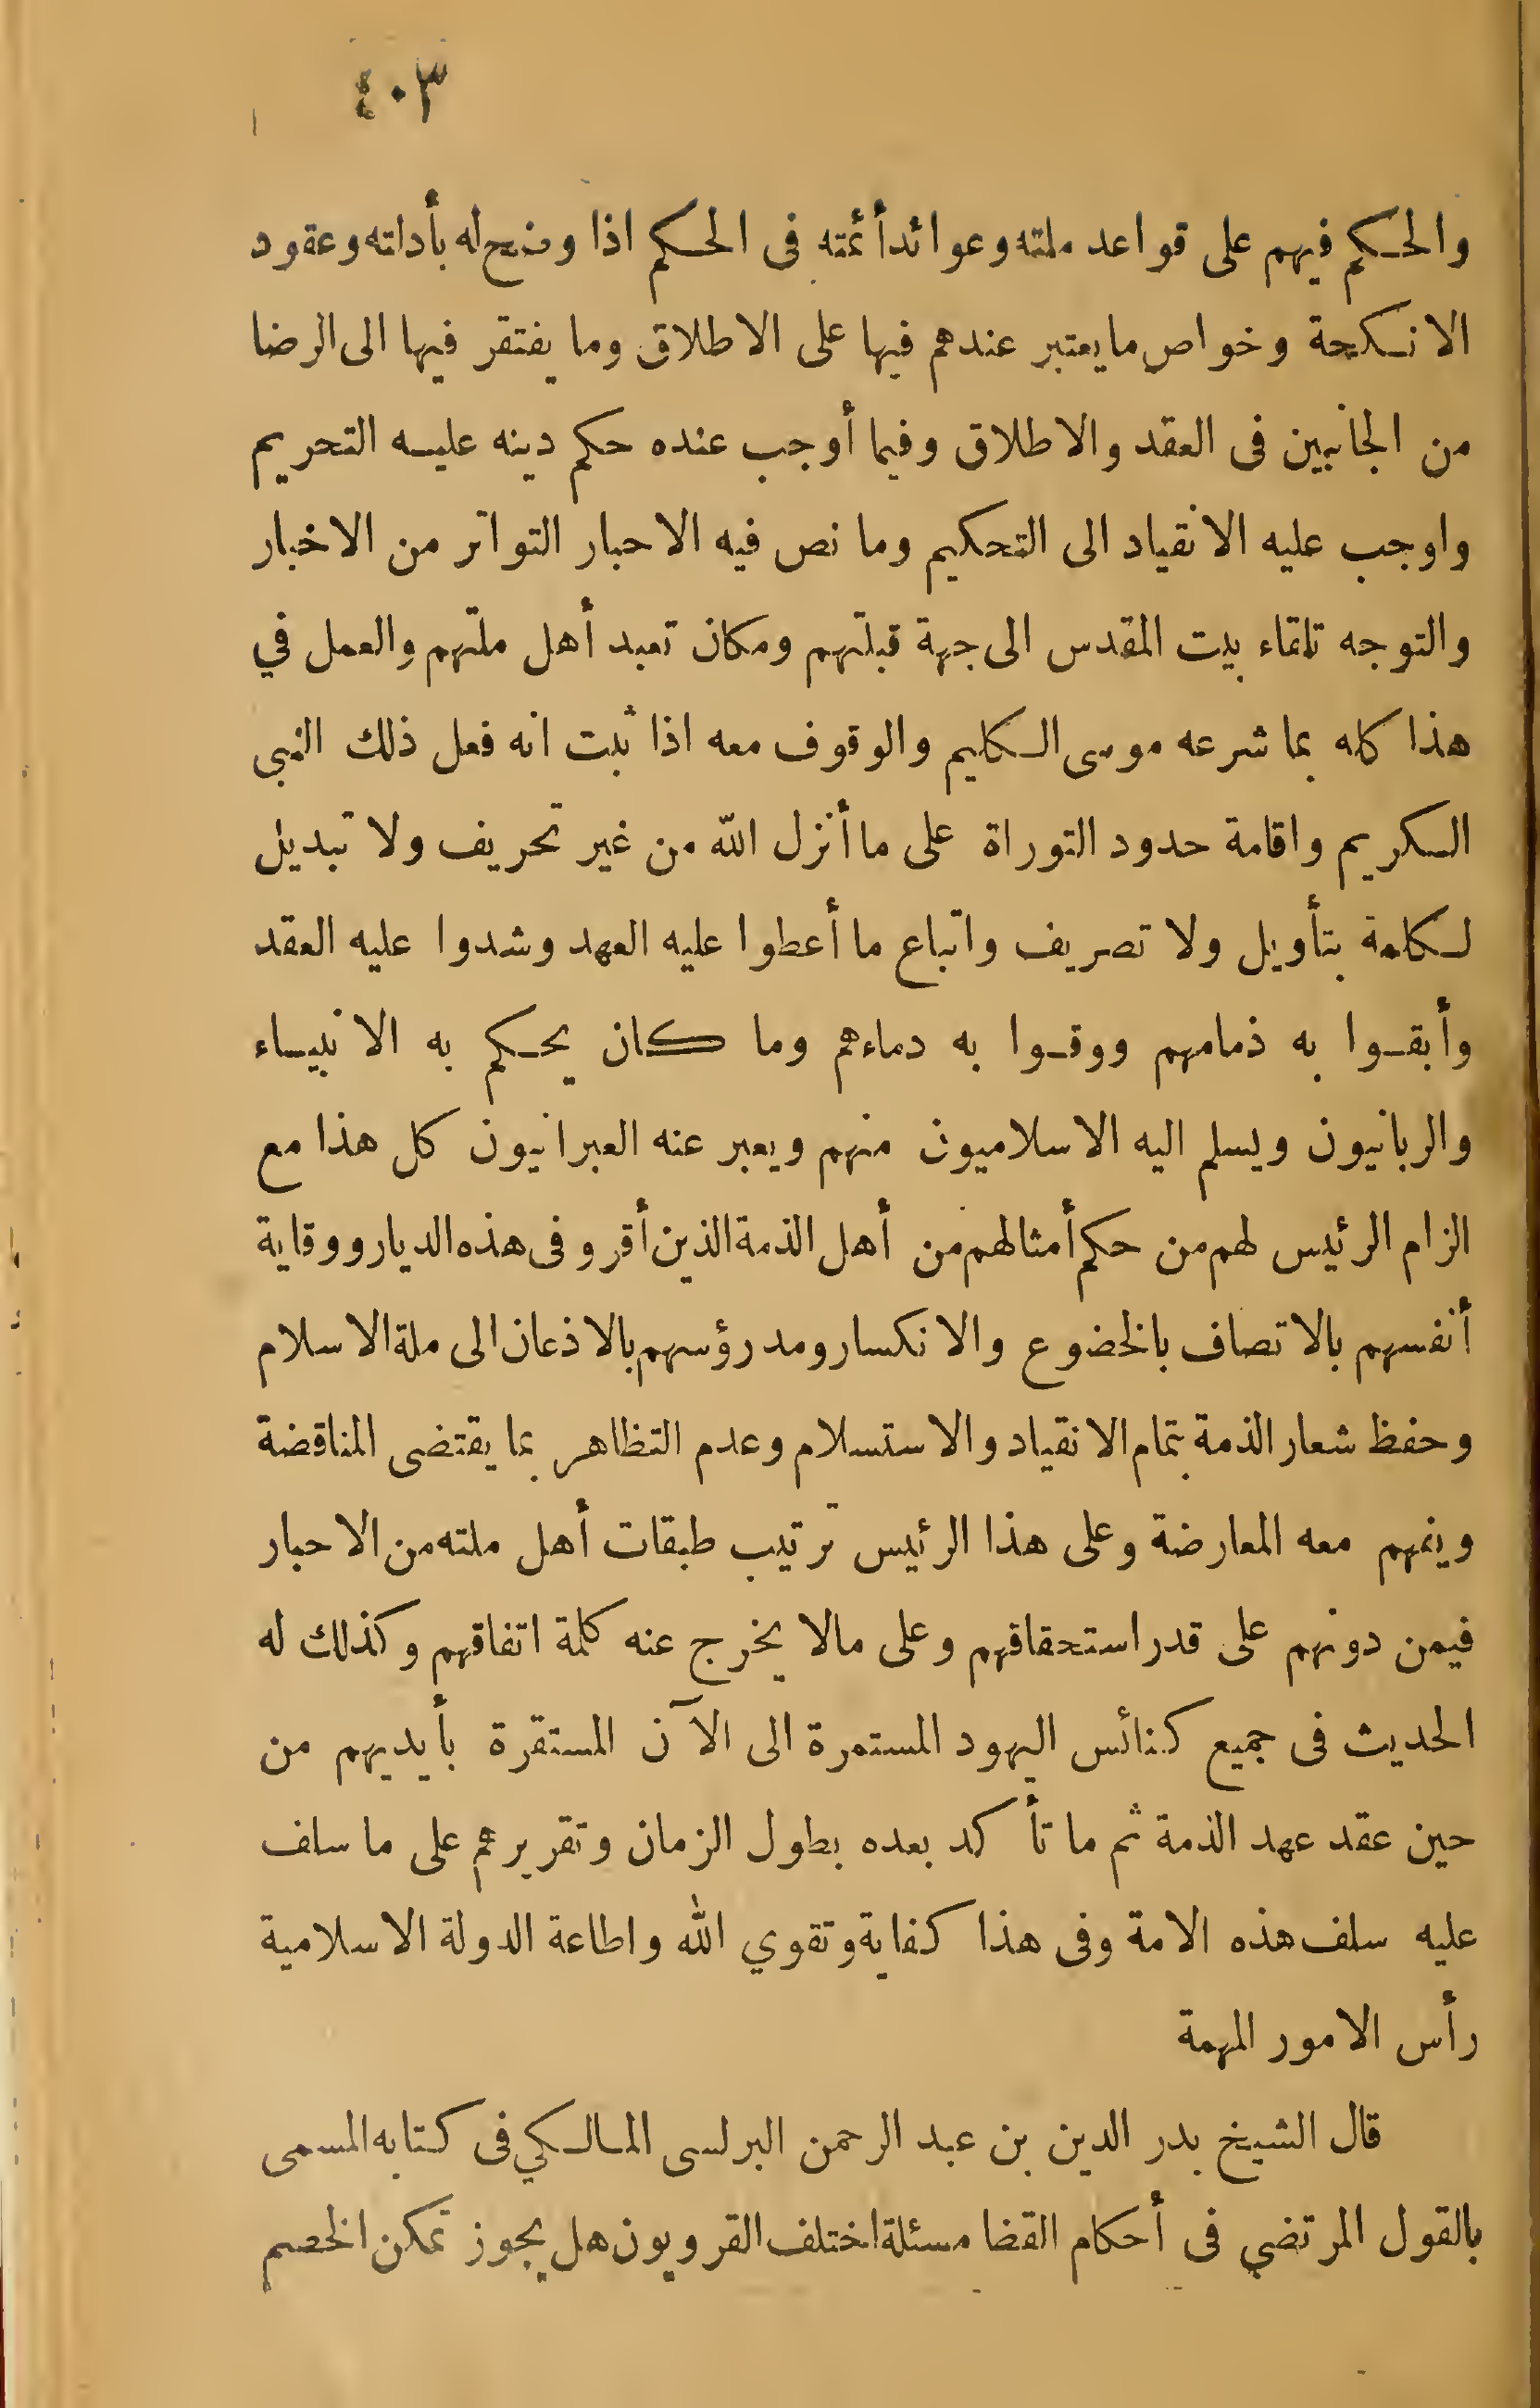 ٤٠٣
والحكم فيهم على قواعد ملته وعوائد أئمته فى الحكم اذا وضح له بأدلته وعقود
الانكحة وخواص ما يعتبر عندهم فيها على الاطلاق وما يفتقر فيها الى الرضا
من الجانبين فى العقد والاطلاق وفيما أوجب عنده حكم دينه عليه التحريم
واوجب عليه الانقياد الى التحكيم وما نص فيه الاحبار التواتر من الاخبار
والتوجه تلقاء بيت المقدس الى جهة قبلتهم ومكان تعبد أهل ملتهم والعمل في
هذا كله بما شرعه موسى الكليم والوقوف معه اذا ثبت انه فعل ذلك النبى
الكريم واقامة حدود التوراة على ما أنزل الله من غير تحريف ولا تبديل
لكلمة بتأويل ولا تصريف واتباع ما أعطوا عليه العهد وشدوا عليه العقد
وأبقوا به ذمامهم ووقوا به دماءهم وما كان يحكم به الانبياء
والربانيون ويسلم اليه الاسلاميون منهم ويعبر عنه العبرانيون كل هذا مع
الزام الرئيس لهم من حكم أمثالهم من أهل الذمة الذين أقرو فى هذه الديار ووقاية
أنفسهم بالاتصاف بالخضوع والانكسار ومد رؤسهم بالاذعان الى ملة الاسلام
وحفظ شعار الذمة بتمام الانقياد والاستسلام وعدم التظاهر بما يقتضى المناقضة
ويفهم معه المعارضة وعلى هذا الرئيس ترتيب طبقات أهل ملته من الاحبار
فيمن دونهم على قدر استحقاقهم وعلى مالا يخرج عنه كلمة اتفاقهم وكذلك له
الحديث فى جميع كنائس اليهود المستمرة الى الآن المستقرة بأيديهم من
حين عقد عهد الذمة ثم ما تأكد بعده بطول الزمان وتقريرهم على ما سلف
عليه سلف هذه الامة وفى هذا كفاية وتقوي الله واطاعة الدولة الاسلامية
رأس الامور المهمة
قال الشيخ بدر الدين بن عبد الرحمن البرلسى المالكي فى كتابه المسمى
بالقول المرتضي فى أحكام القضا مسئلة اختلف القرويون هل يجوز تمكن الخصم